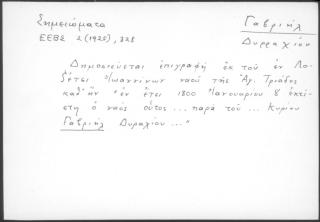 Σημειώματα
Γαβριήλ
ΕΕΒΣ 2 (1925), 328
Δυρραχίου
Δημοσιεύεται ἐπιγραφὴ ἐκ τοῦ ἐν
Ἰωαννίνων ναοῦ τῆς Ἁγ. Τριάδος
καθ' ἣν "ἐν ἔτει 1800 Ἰανουαρίου 8 ἐκτί-
στη ὁ ναὸς οὗτος ... παρὰ τοῦ ... Κυρίου
Γαβριὴλ Δυραχίου ..."